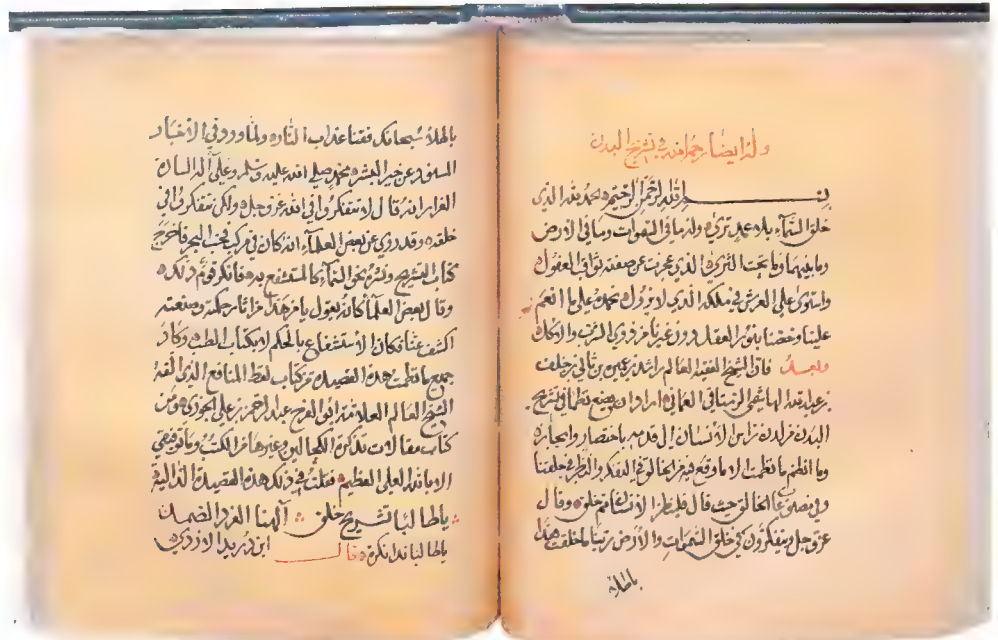 وله ايضا رحمه الله في تشريح البدن
بسم الله الرحمن الرحيم الحمد لله الذي
خلق السمآء بلا عمد ترى وله ما في السموات وما في الأرض
وما بينهما وما تحت الثرى الذي عجزت عن صفته ثواقب العقول
واستوى على العرش في ملكه الذي لا يزول نحمده على ما انعم
علينا وخصنا بنور العقل دون غيرنا من ذوي الشرب والاكل
وبعد فان الشيخ الفقيه العالم راشد بن عميره بن ثاني بن خلف
بن عبد الله الهاشمي العماني اراد ان يضع نظما في تشريح
البدن من لدن راس الأنسان الى قدميه باختصار وايجازه
وما انظم ما نظمت الا ما وقع فيه من الخالق في التفكر والنظر في خلقتنا
وفي الخالق حيث قال فلينظر الأنسان مم خلق وقال
عز وجل ويتفكرون في خلق السموات والأرض ربنا ما خلقت هذا
باطلا
باطلا سبحانك فقنا عذاب النار ولما ورد في الأخبار
عن خير البشر محمد صلى الله عليه وسلم وعلى اله السادة
الغرر انه قال لا تتفكروا في الله عز وجل ولكن تفكروا في
خلقه وقد روي عن بعض العلمآء انه كان في مركب في البحر فاخرج
كتاب التشريح ونشره نحو السمآء كالمستشفع به فانكر قوم ذلك
وقال بعض العلما كانه يقول يا من هذا من اثار حكمته وصنعته
اكشف عنا فكان الأستشفاع بالحكم لا بكتاب الطب وكان
جميع ما نظمت هذه القصيدة من كتاب لقط المنافع الذي الفه
الشيخ العالم العلامة ابو الفرج عبد الرحمن بن علي الجوزي ومن
كتاب مقالات تذكرة الكحالين وغيرها من الكتب وما توفيقي
الا بالله العلي العظيم فقلت في ذلك هذه القصيدة
يا طالبا تشريح خلق الهنا الفرد الصمد
يا طالبا تذكرة وقال ابن دريد الازدي